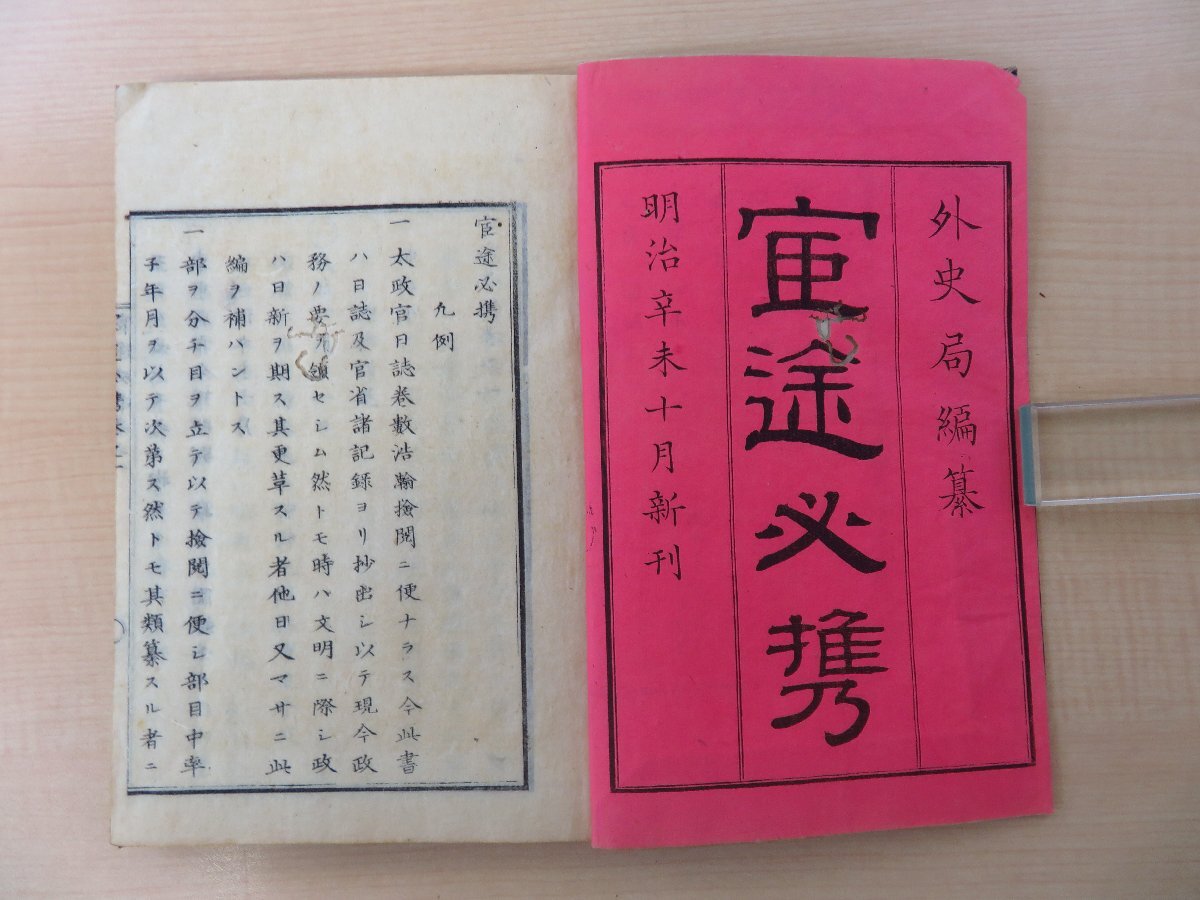 外史局編纂
宦途必携
明治辛未十月新刊
宦途必携
凢例
一太政官日誌巻数浩瀚撿閲ニ便ナラス今此書
ハ日誌及官省諸記録ヨリ抄出シ以テ現今政
務ノ要ヲ領セシム然トモ時ハ文明ニ際シ政
ハ日新ヲ期ス其更革スル者他日又マサニ此
編ヲ補ハントス
一部ヲ分チ目ヲ立テ以テ撿閲ニ便シ部目中率
子年月ヲ以テ次第ス然トモ其類纂スル者ニ